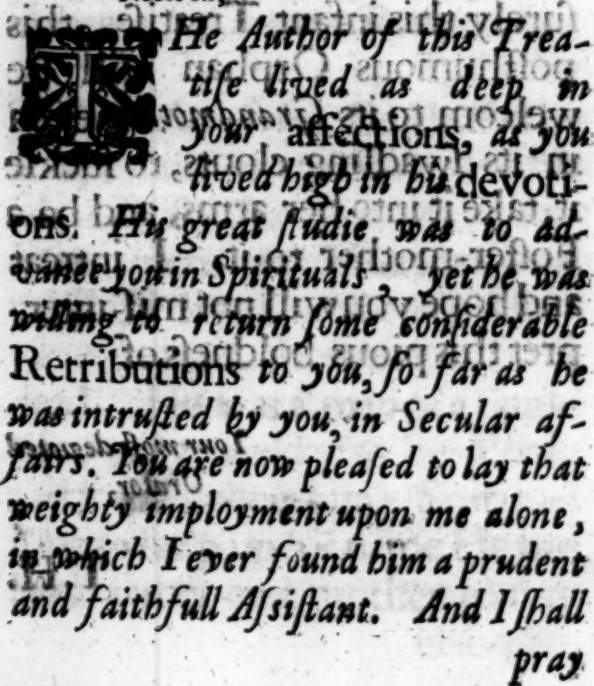 THe Author of this Trea-
tiſe lived as deep in
your affections, as you
lived high in his devoti-
ons. His great ſtudie was to ad-
vance you in Spirituals, yet he was
willing to return ſome conſiderable
Retributions to you, ſo far as he
was intruſted by you, in Secular af-
fairs. You are now pleaſed to lay that
weighty imployment upon me alone,
in which I ever found him a prudent
and faithfull Aſsiſtant. And I ſhall
pray